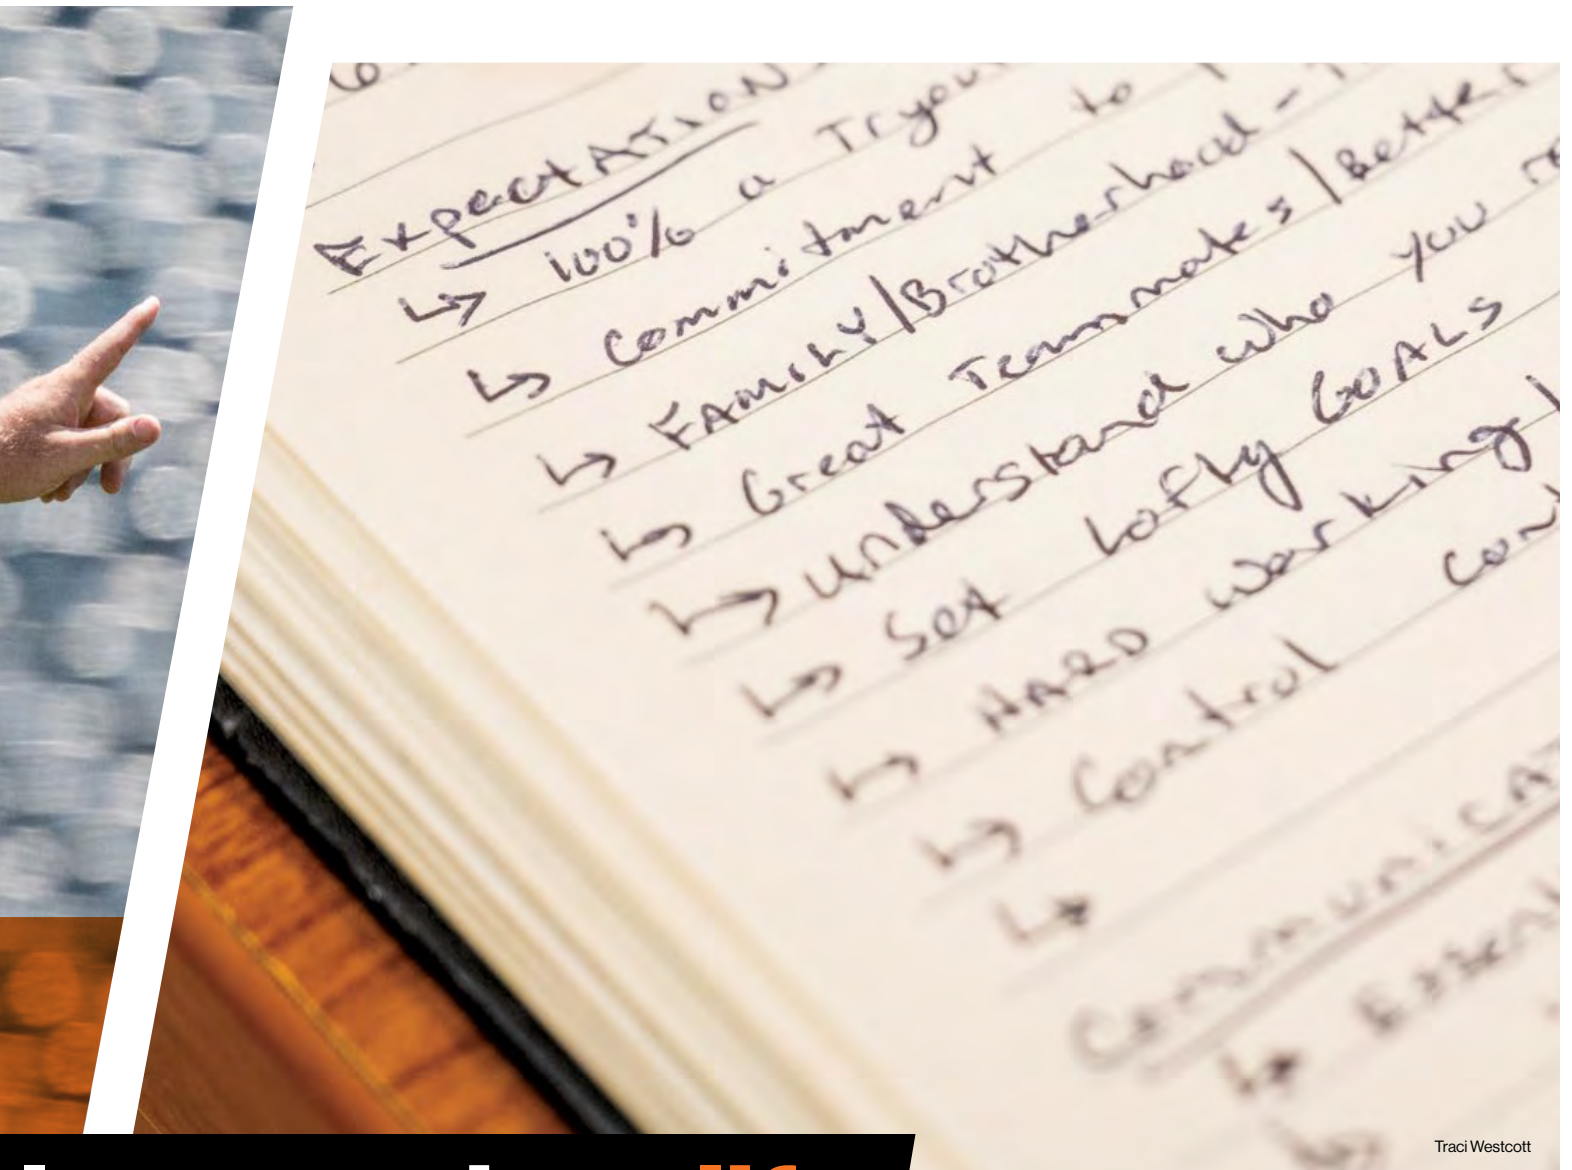 ExpectATION
↳ 100% a Tryou
↳ Commitment to
↳ FAMILY/Brotherhood -
↳ Great Teammates/Better
↳ Understand who you
↳ Set Lofty GOALS
↳ HARD working/
↳ Control Cont
↳
CommunicAT
↳ Essent
↳
Traci Westcott